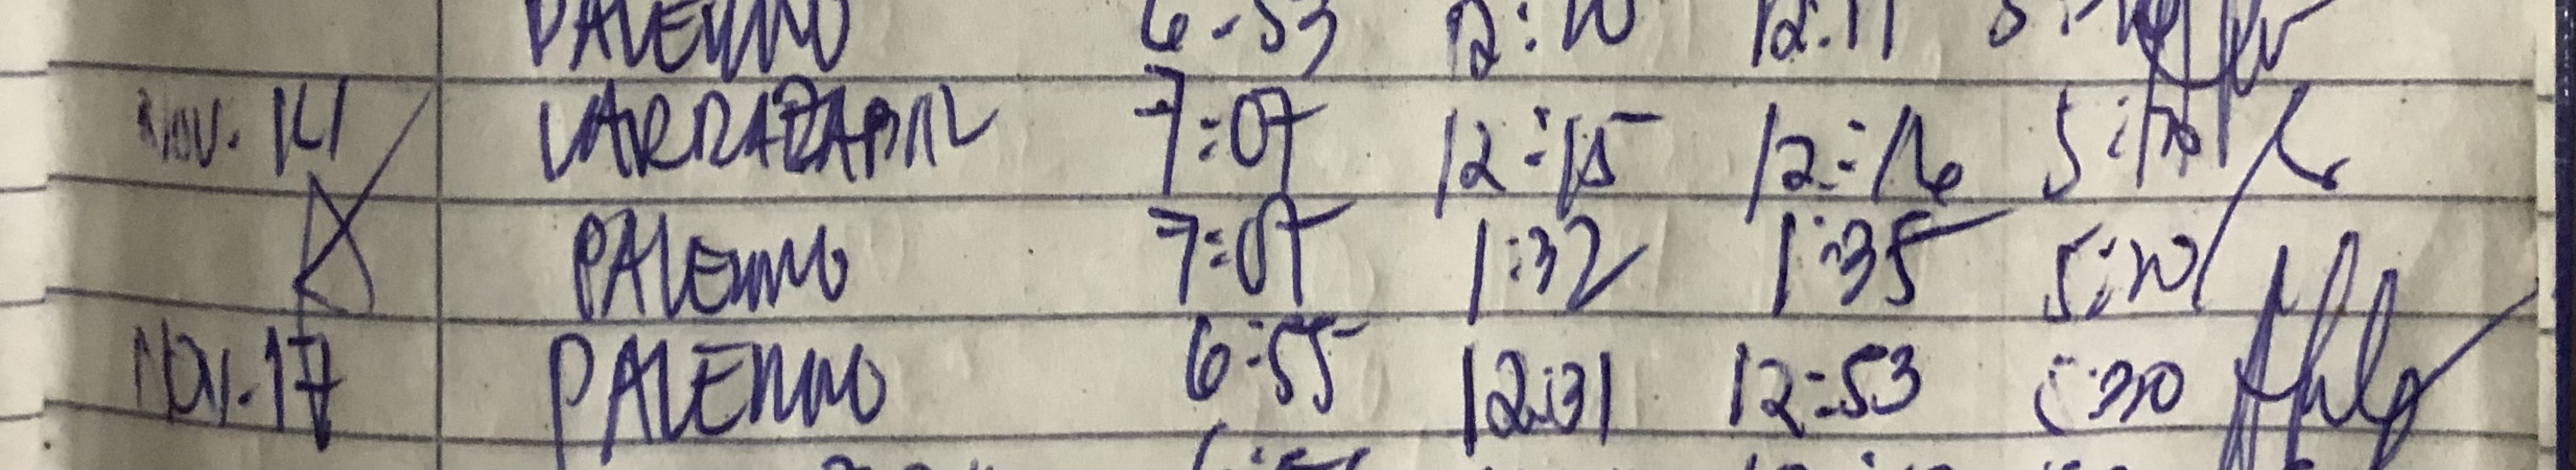 PALERMO 6:53 12:10 12:11
Nov. 14 7:07 12:15 12:16
PALERMO 7:07 1:32 1:35 5:20
Nov. 17 PALERMO 6:55 12:31 12:53 5:30